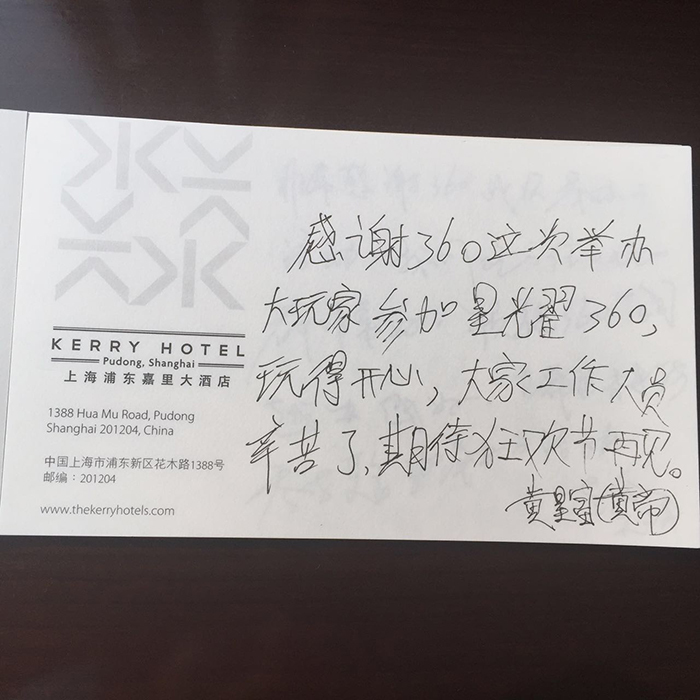 KERRY HOTEL
Pudong, Shanghai
上海浦东嘉里大酒店
1388 Hua Mu Road, Pudong
Shanghai 201204, China
中国上海市浦东新区花木路1388号
邮编：201204
www.thekerryhotels.com
感谢360这次举办
大玩家参加星光耀360，
玩得开心，大家工作人员
辛苦了，期待狂欢节再见。
黄星富（黄帝）